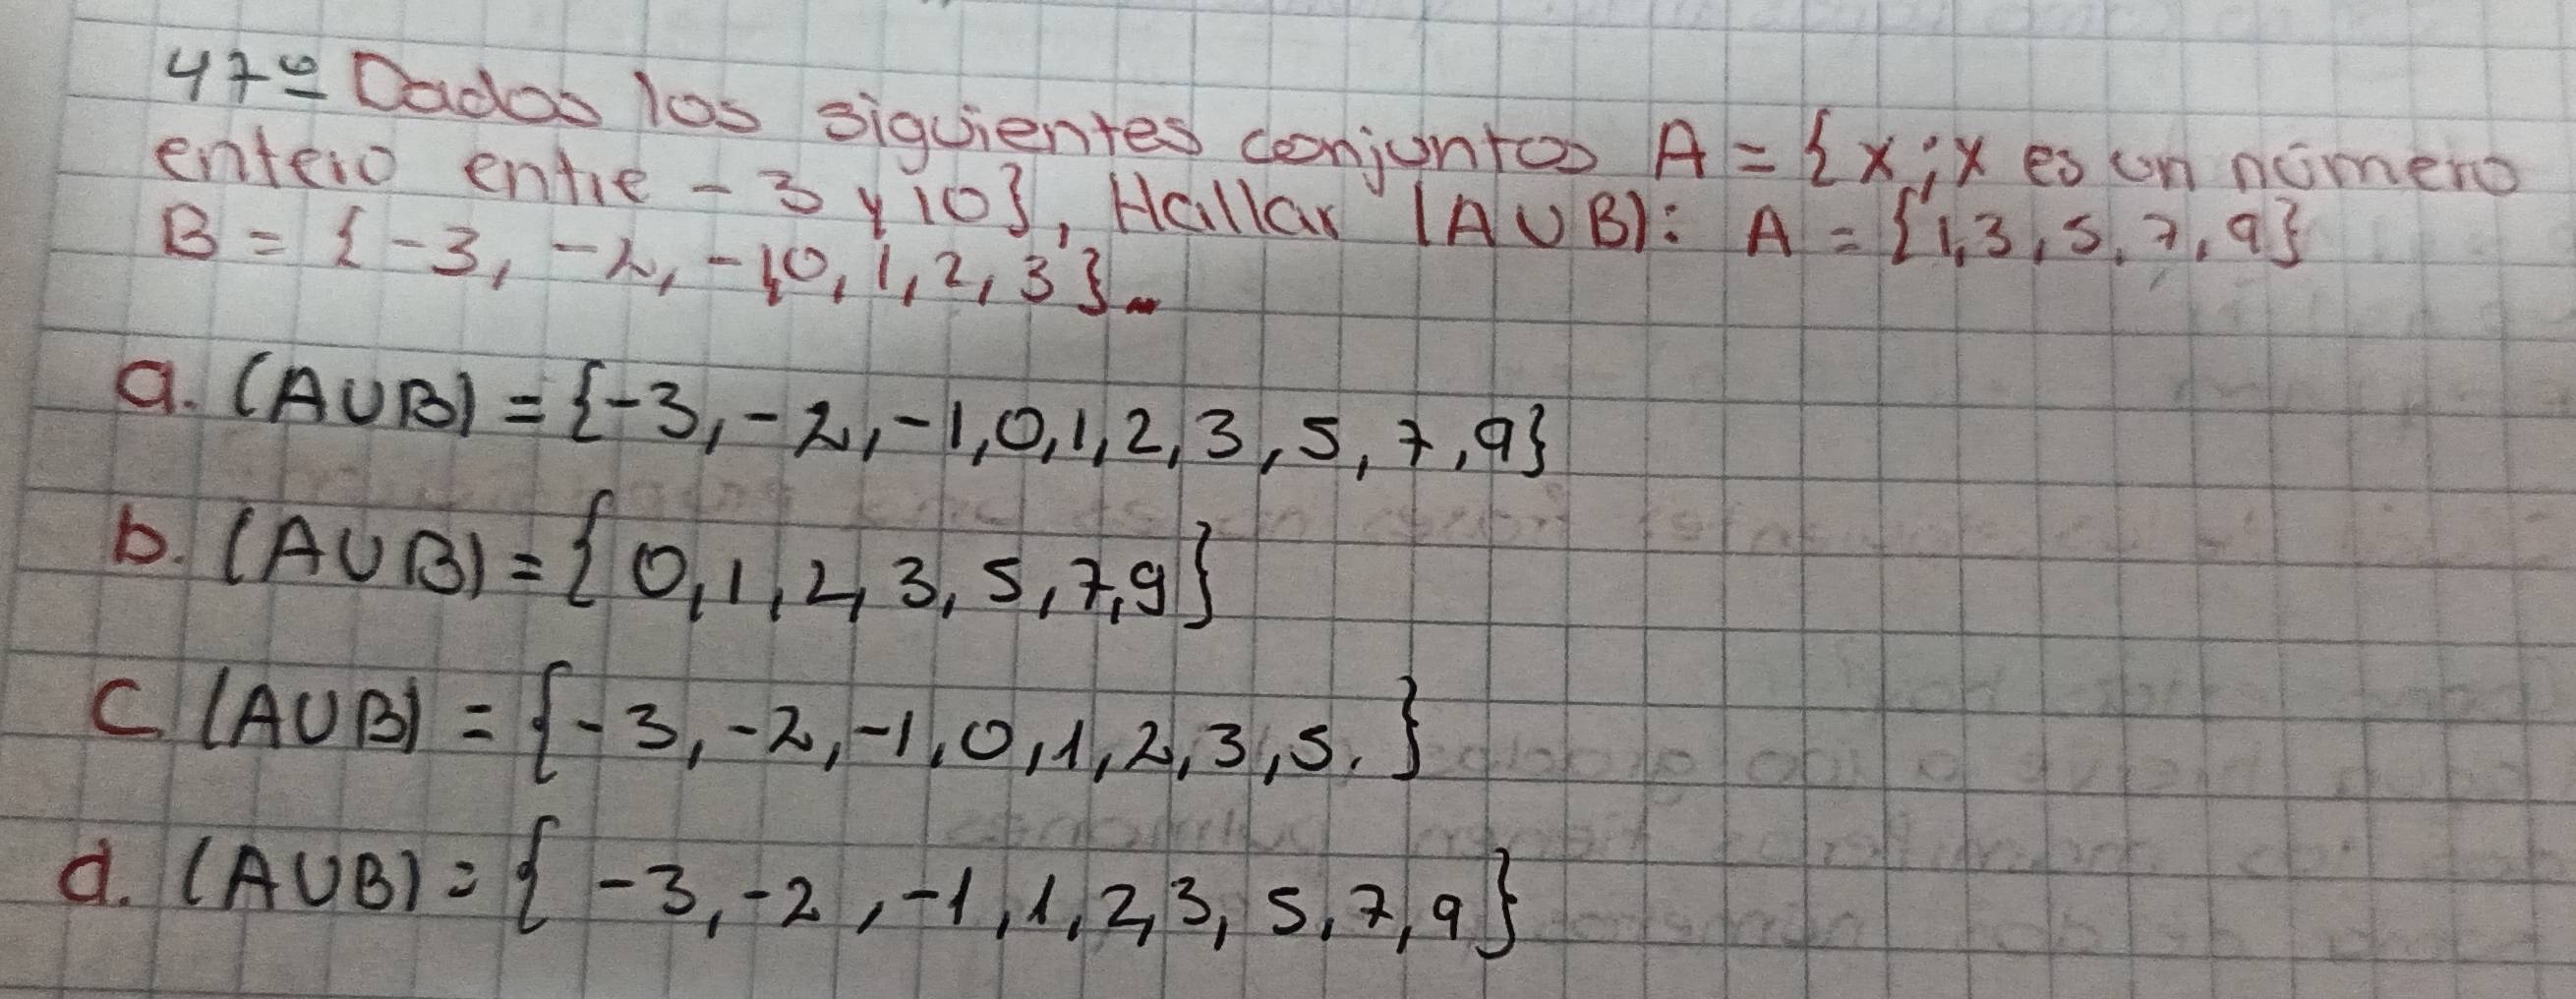 47º Dados los siguientes conjuntos A = {x; x es un número
entero entre -3 y 10}, Hallar (A∪B): A = {1,3,5,7,9}
B = {-3, -2, -1,0, 1, 2, 3}.
a. (A∪B) = {-3, -2, -1,0,1,2,3,5,7,9}
b. (A∪B) = {0,1,2,3,5,7,9}
c (A∪B) = {-3,-2,-1,0,1,2,3,5.}
d. (A∪B) = {-3,-2,-1,1,2,3,5,7,9}